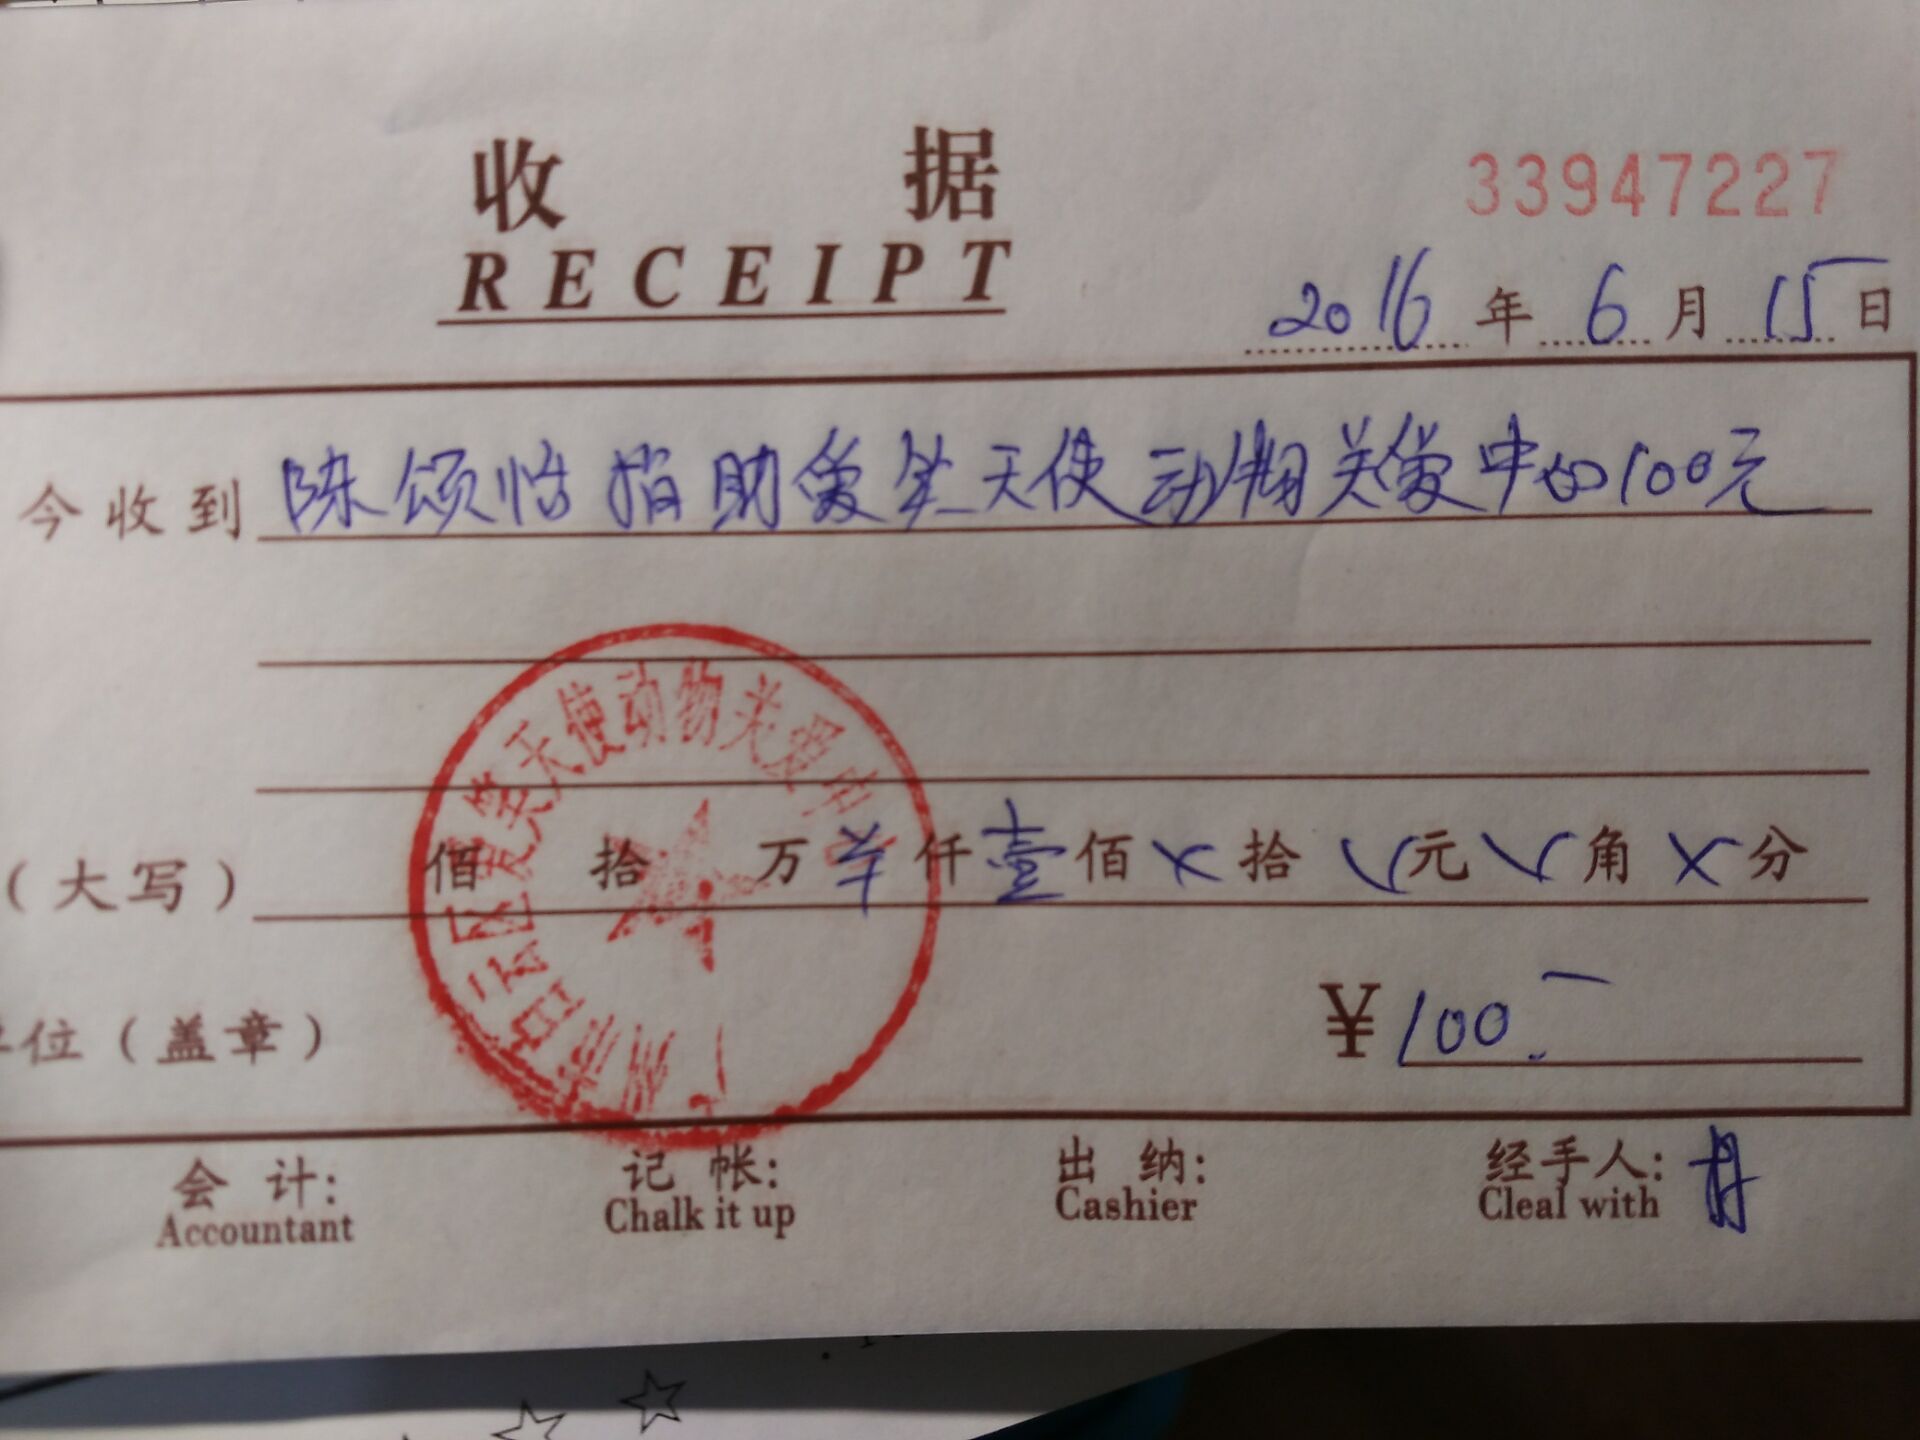 收 据
RECEIPT
33947227
2016 年 6 月 15 日
今收到 陈颂怡捐助爱笑天使动物关爱中心100元
(大写) 佰 拾 万 羊 仟 壹 佰 × 拾 元 角 × 分
单位(盖章)
¥ 100.一
白云区爱笑天使动物关爱中
会 计:
Accountant
记 帐:
Chalk it up
出 纳:
Cashier
经手人:
Cleal with